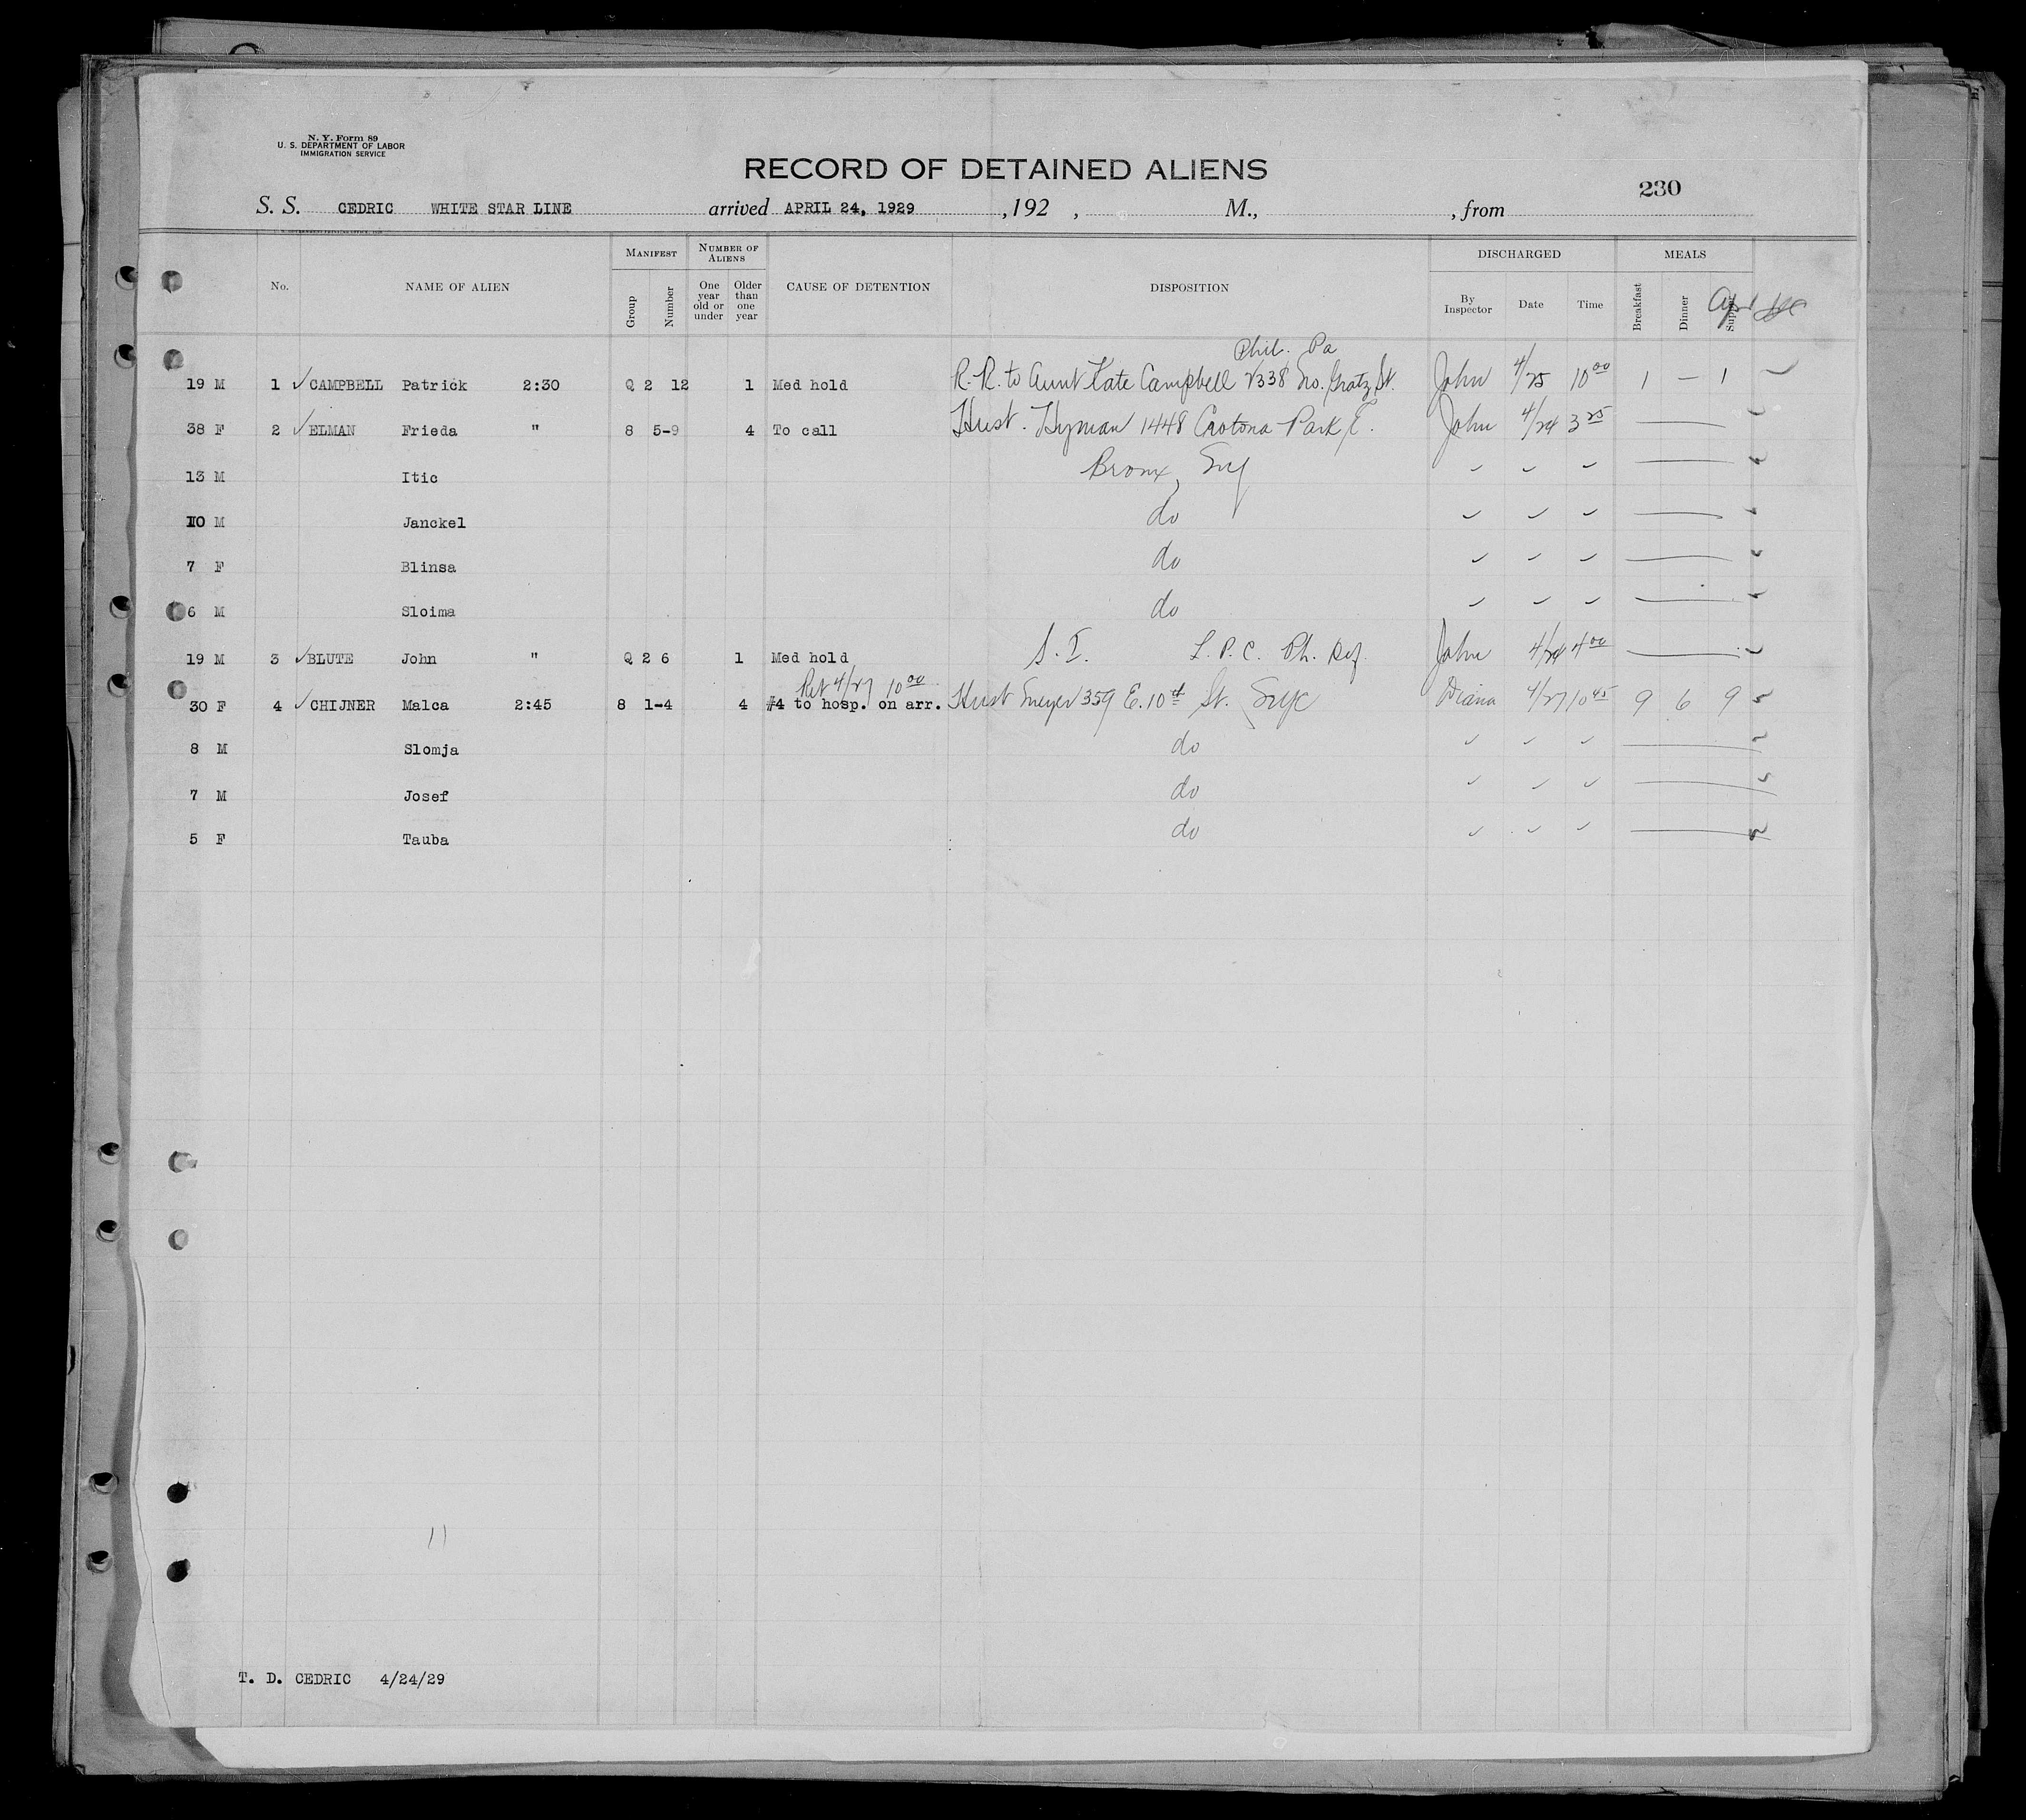 N. Y. Form 89
U. S. DEPARTMENT OF LABOR
IMMIGRATION SERVICE
RECORD OF DETAINED ALIENS
230
S. S. CEDRIC WHITE STAR LINE arrived APRIL 24, 1929 , 192 , M., , from
No. NAME OF ALIEN MANIFEST Group Number NUMBER OF ALIENS One year old or under Older than one year CAUSE OF DETENTION DISPOSITION DISCHARGED By Inspector Date Time MEALS Breakfast Dinner Supper
Phil. Pa
19 M 1 ✓ CAMPBELL Patrick 2:30 Q 2 12 1 Med hold R.R. to Aunt Kate Campbell 2338 No. Gratz St. John 4/25 10 00 1 — 1
38 F 2 ✓ ELMAN Frieda " 8 5-9 4 To call Hust. Hyman 1448 Crotona Park E. John 4/24 3 25
13 M Itic Bronx, NY ✓ ✓ ✓
10 M Janckel do ✓ ✓ ✓
7 F Blinsa do ✓ ✓ ✓
6 M Sloima do ✓ ✓ ✓
19 M 3 ✓ BLUTE John " Q 2 6 1 Med hold S. I. L. P. C. Ph. Def. John 4/24 4 00
Ret 4/27 10 00
30 F 4 ✓ CHIJNER Malca 2:45 8 1-4 4 #4 to hosp. on arr. Hust Meyer 359 E. 10th St. NYC Diana 4/27 10 45 9 6 9
8 M Slomja do ✓ ✓ ✓
7 M Josef do ✓ ✓ ✓
5 F Tauba do ✓ ✓ ✓
11
T. D. CEDRIC 4/24/29